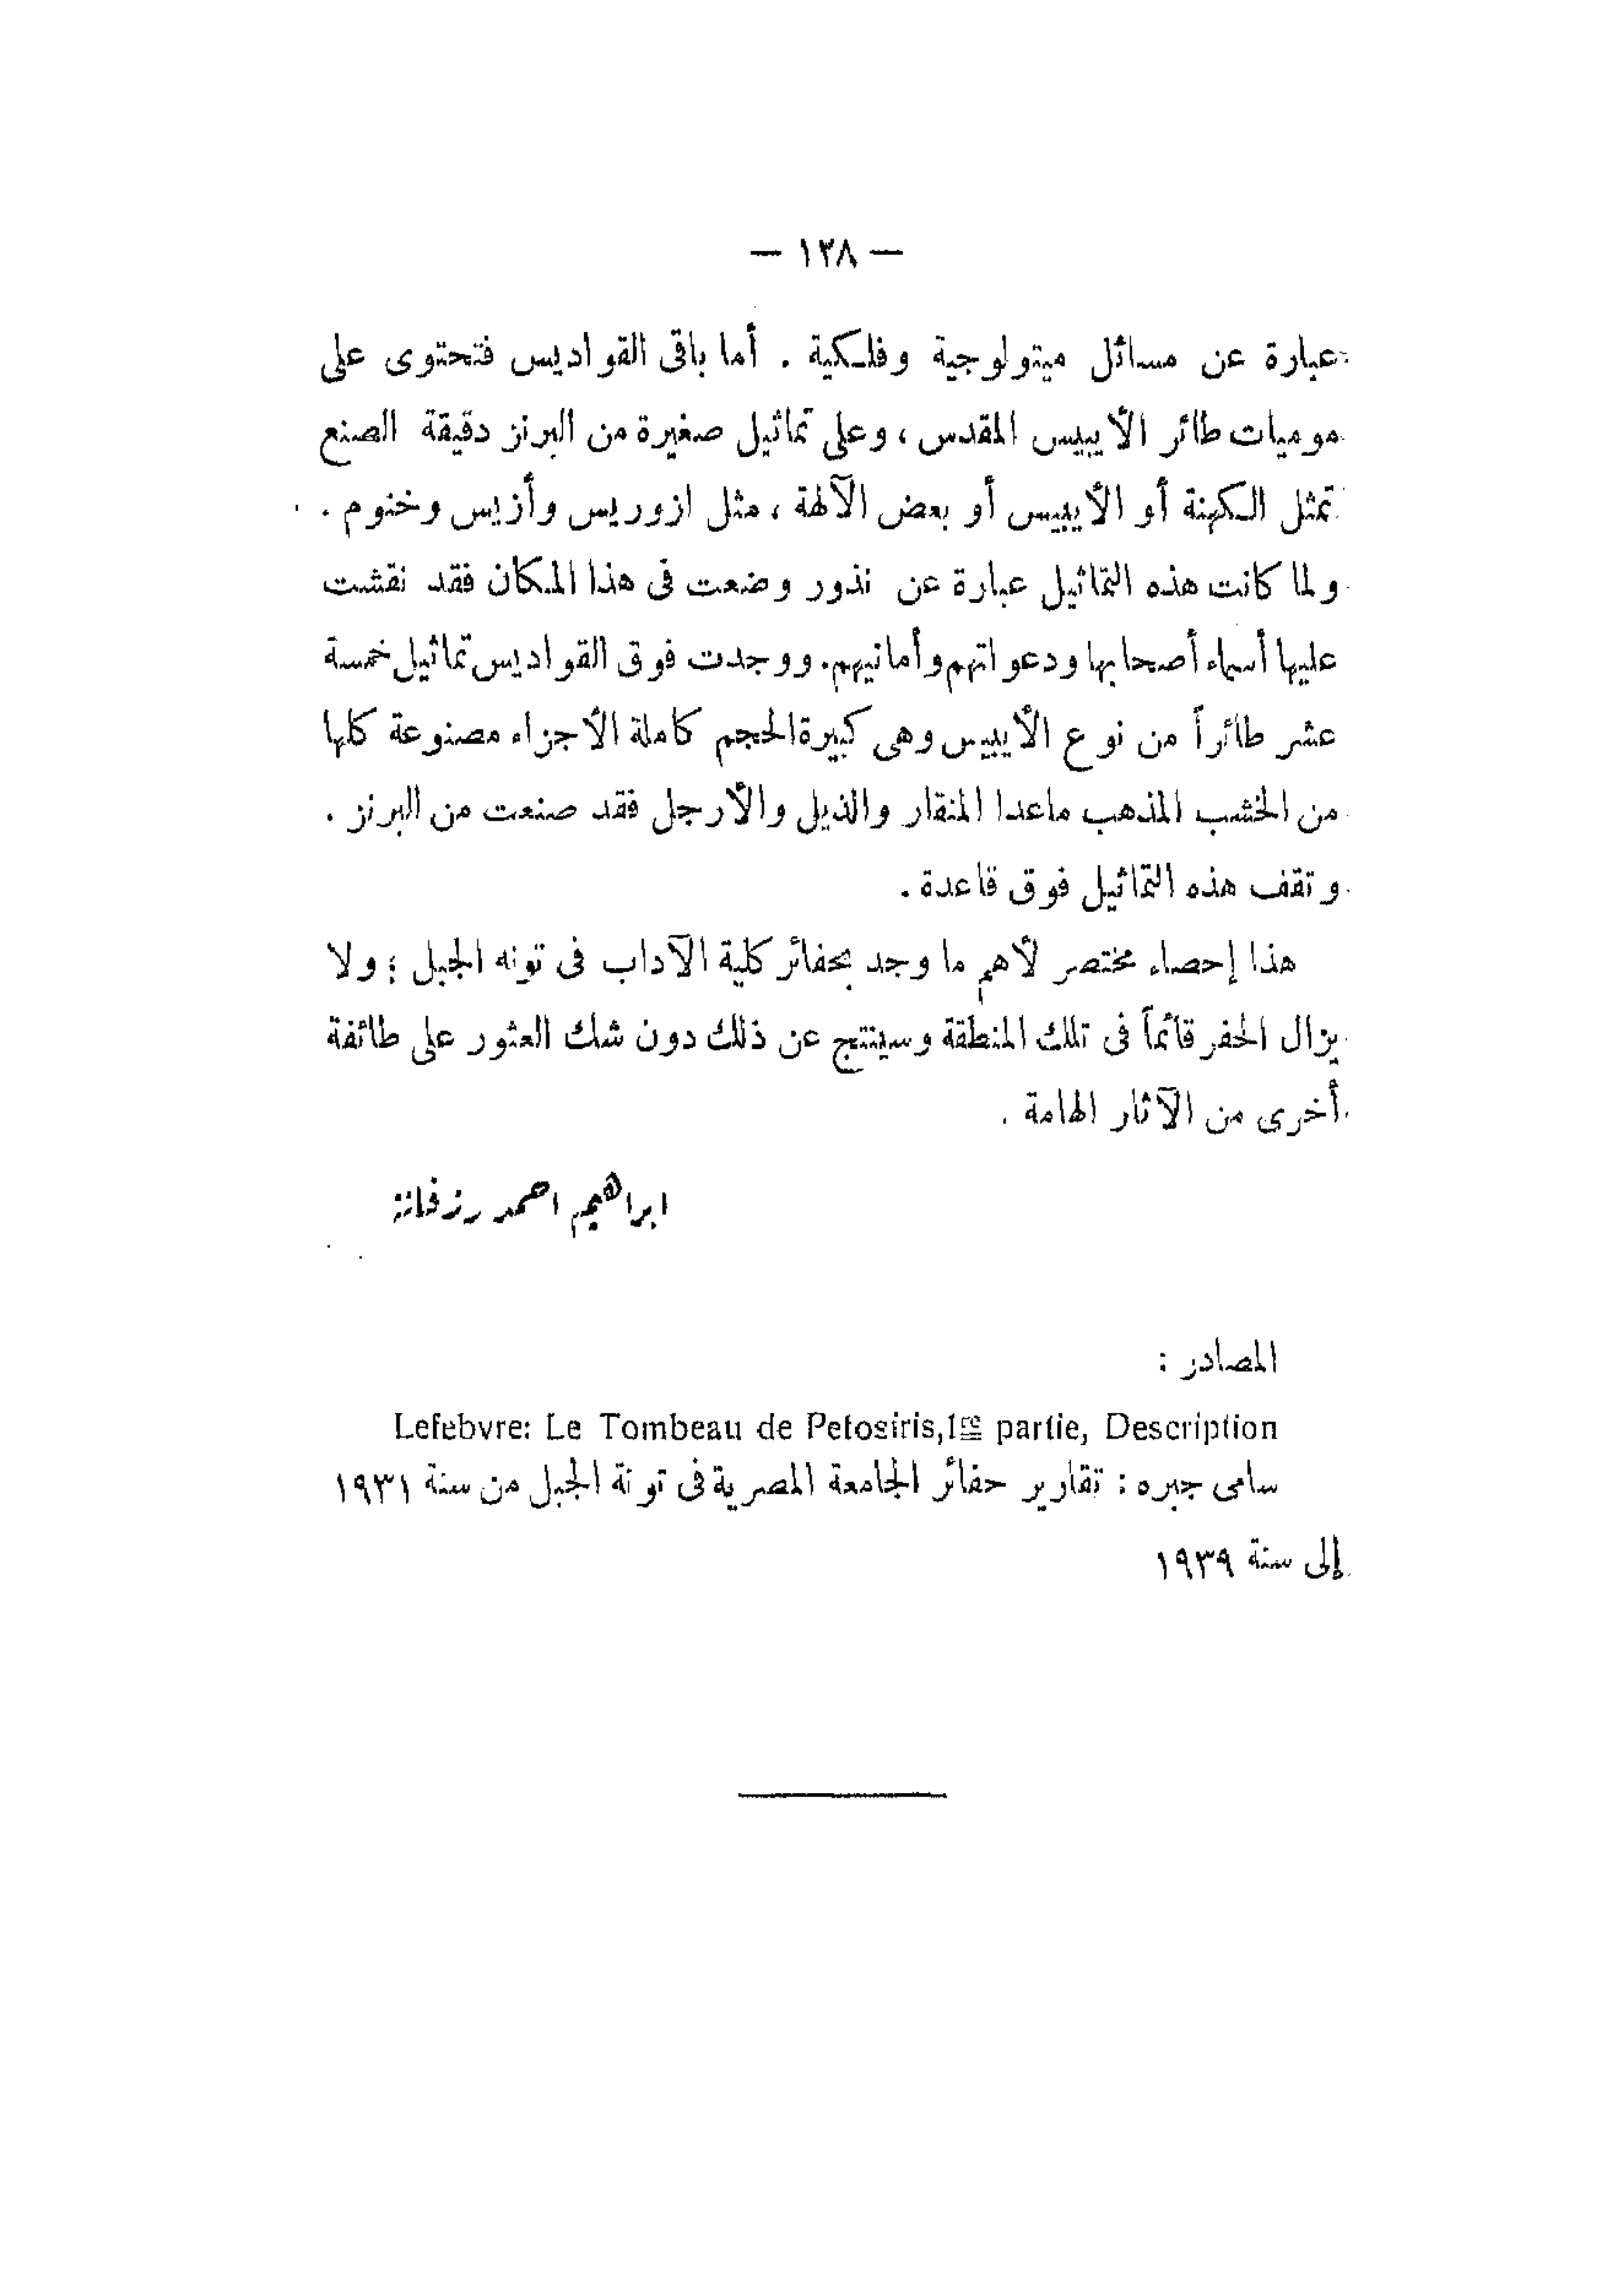 — ١٣٨ —
عبارة عن مسائل ميتولوجية وفلكية . أما باقى القواديس فتحتوى على
موميات طائر الأيبيس المقدس ، وعلى تماثيل صغيرة من البرنز دقيقة الصنع
تمثل الكهنة أو الأيبيس أو بعض الآلهة ، مثل ازوريس وأزيس وخنوم .
ولما كانت هذه التماثيل عبارة عن نذور وضعت فى هذا المكان فقد نقشت
عليها أسماء أصحابها ودعواتهم وأمانيهم. ووجدت فوق القواديس تماثيل خمسة
عشر طائراً من نوع الأيبيس وهى كبيرة الحجم كاملة الأجزاء مصنوعة كلها
من الخشب المذهب ماعدا المنقار والذيل والأرجل فقد صنعت من البرنز .
وتقف هذه التماثيل فوق قاعدة .
هذا إحصاء مختصر لأهم ما وجد بحفائر كلية الآداب فى تونه الجبل ؛ ولا
يزال الحفر قائماً فى تلك المنطقة وسينتج عن ذلك دون شك العثور على طائفة
أخرى من الآثار الهامة .
ابراهيم احمد رزقانة
المصادر :
Lefebvre: Le Tombeau de Petosiris,1re partie, Description
سامى جبره : تقارير حفائر الجامعة المصرية فى تونة الجبل من سنة ١٩٣١
إلى سنة ١٩٣٩